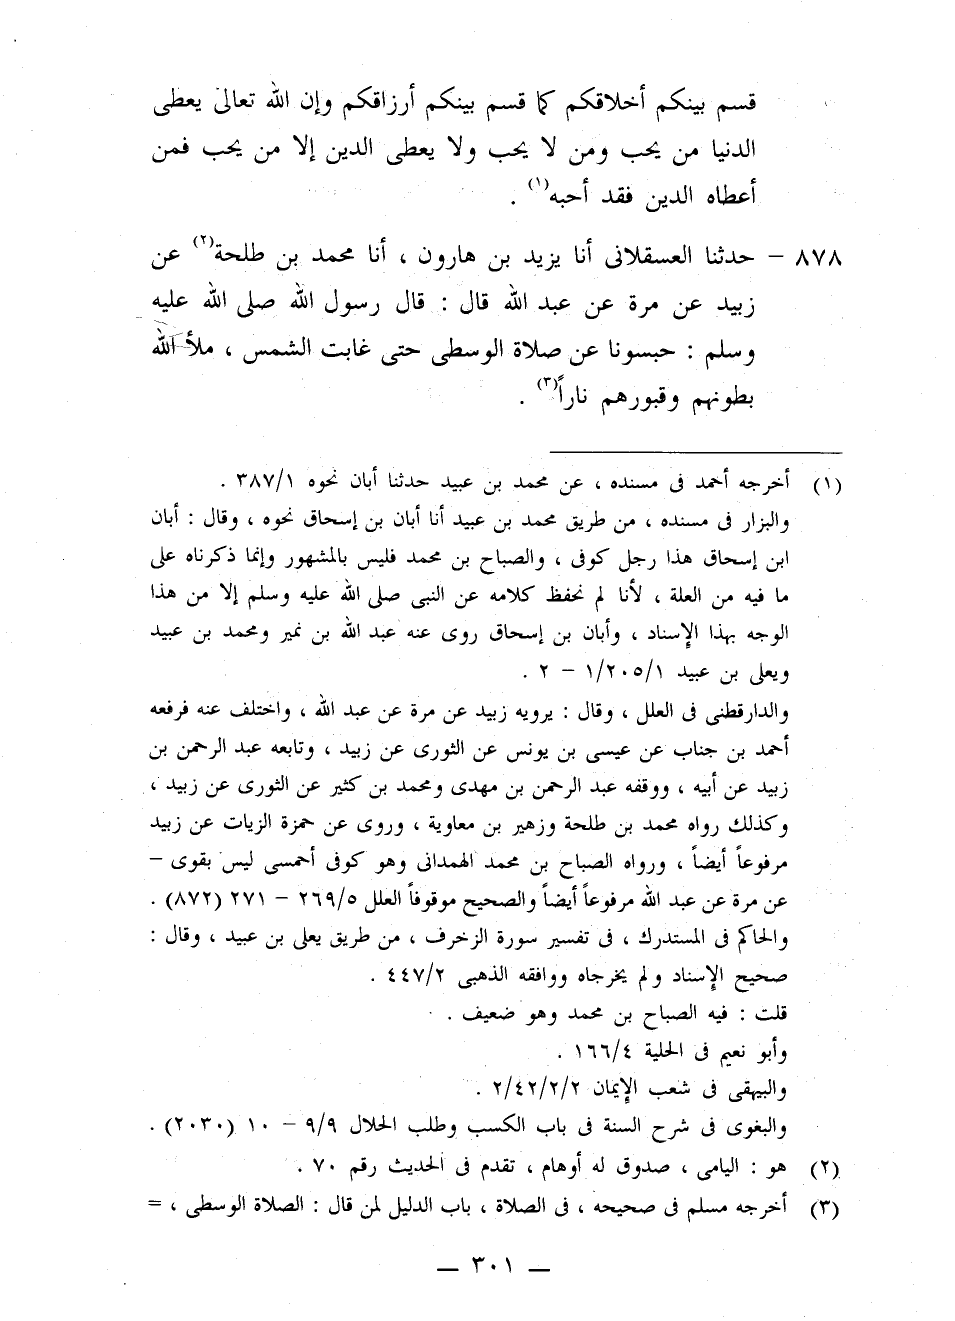 قسم بينكم أخلاقكم كما قسم بينكم أرزاقكم وإن الله تعالى يعطى
الدنيا من يحب ومن لا يحب ولا يعطى الدين إلا من يحب فمن
أعطاه الدين فقد أحبه(١) .
٨٧٨ – حدثنا العسقلانى أنا يزيد بن هارون ، أنا محمد بن طلحة(٢) عن
زبيد عن مرة عن عبد الله قال : قال رسول الله صلى الله عليه
وسلم : حبسونا عن صلاة الوسطى حتى غابت الشمس ، ملأ الله
بطونهم وقبورهم ناراً(٣) .
(١) أخرجه أحمد فى مسنده ، عن محمد بن عبيد حدثنا أبان نحوه ٣٨٧/١ .
والبزار فى مسنده ، من طريق محمد بن عبيد أنا أبان بن إسحاق نحوه ، وقال : أبان
ابن إسحاق هذا رجل كوفى ، والصباح بن محمد فليس بالمشهور وإنما ذكرناه على
ما فيه من العلة ، لأنا لم نحفظ كلامه عن النبى صلى الله عليه وسلم إلا من هذا
الوجه بهذا الإسناد ، وأبان بن إسحاق روى عنه عبد الله بن نمير ومحمد بن عبيد
ويعلى بن عبيد ١/٢٠٥/١ – ٢ .
والدارقطنى فى العلل ، وقال : يرويه زبيد عن مرة عن عبد الله ، واختلف عنه فرفعه
أحمد بن جناب عن عيسى بن يونس عن الثورى عن زبيد ، وتابعه عبد الرحمن بن
زبيد عن أبيه ، ووقفه عبد الرحمن بن مهدى ومحمد بن كثير عن الثورى عن زبيد ،
وكذلك رواه محمد بن طلحة وزهير بن معاوية ، وروى عن حمزة الزيات عن زبيد
مرفوعاً أيضاً ، ورواه الصباح بن محمد الهمدانى وهو كوفى أحمسى ليس بقوى –
عن مرة عن عبد الله مرفوعاً أيضاً والصحيح موقوفاً العلل ٢٦٩/٥ – ٢٧١ (٨٧٢) .
والحاكم فى المستدرك ، فى تفسير سورة الزخرف ، من طريق يعلى بن عبيد ، وقال :
صحيح الإسناد ولم يخرجاه ووافقه الذهبى ٤٤٧/٢ .
قلت : فيه الصباح بن محمد وهو ضعيف .
وأبو نعيم فى الحلية ١٦٦/٤ .
والبيهقى فى شعب الإيمان ٢/٤٢/٢/٢ .
والبغوى فى شرح السنة فى باب الكسب وطلب الحلال ٩/٩ – ١٠ (٢٠٣٠) .
(٢) هو : اليامى ، صدوق له أوهام ، تقدم فى الحديث رقم ٧٠ .
(٣) أخرجه مسلم فى صحيحه ، فى الصلاة ، باب الدليل لمن قال : الصلاة الوسطى ، =
— ٣٠١ —